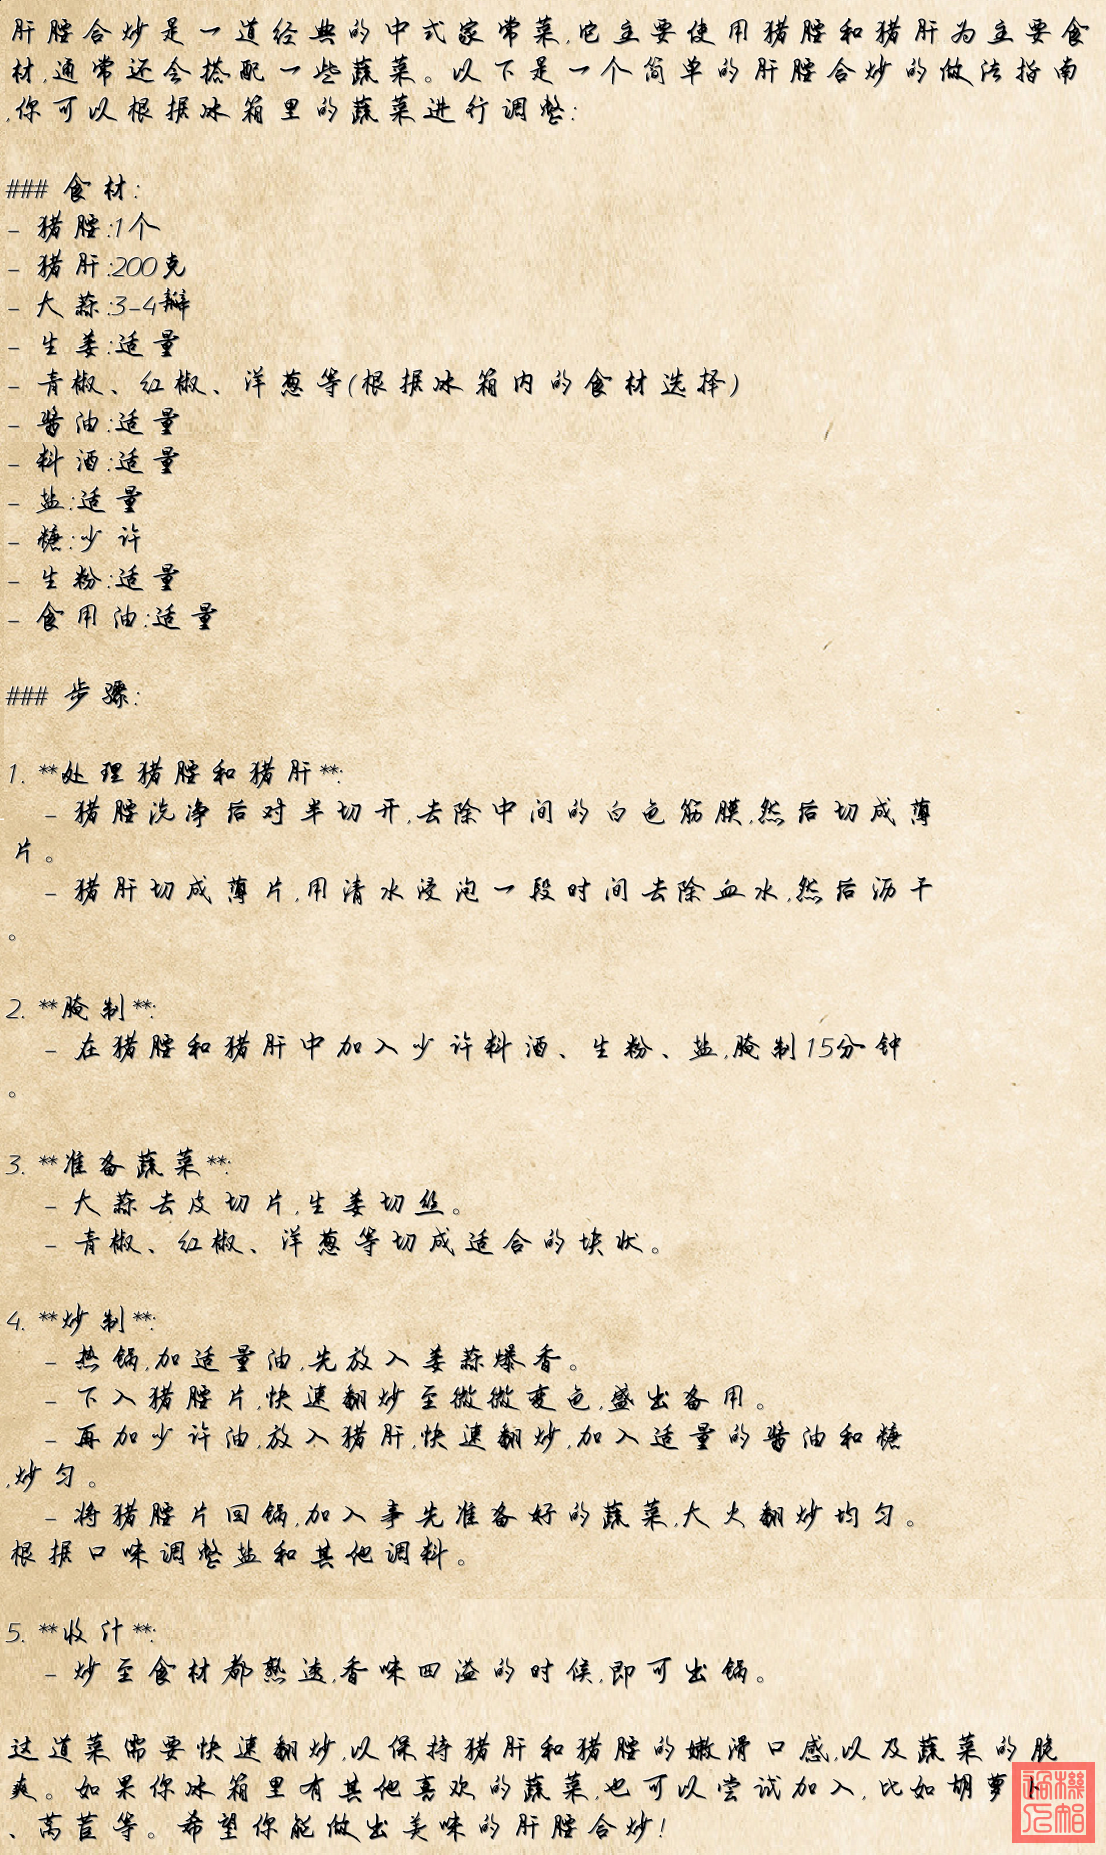 肝腰合炒是一道经典的中式家常菜,它主要使用猪腰和猪肝为主要食
材,通常还会搭配一些蔬菜。以下是一个简单的肝腰合炒的做法指南
,你可以根据冰箱里的蔬菜进行调整:
### 食材:
- 猪腰:1个
- 猪肝:200克
- 大蒜:3-4瓣
- 生姜:适量
- 青椒、红椒、洋葱等(根据冰箱内的食材选择)
- 酱油:适量
- 料酒:适量
- 盐:适量
- 糖:少许
- 生粉:适量
- 食用油:适量
### 步骤:
1. **处理猪腰和猪肝**:
- 猪腰洗净后对半切开,去除中间的白色筋膜,然后切成薄
片。
- 猪肝切成薄片,用清水浸泡一段时间去除血水,然后沥干
。
2. **腌制**:
- 在猪腰和猪肝中加入少许料酒、生粉、盐,腌制15分钟
。
3. **准备蔬菜**:
- 大蒜去皮切片,生姜切丝。
- 青椒、红椒、洋葱等切成适合的块状。
4. **炒制**:
- 热锅,加适量油,先放入姜蒜爆香。
- 下入猪腰片,快速翻炒至微微变色,盛出备用。
- 再加少许油,放入猪肝,快速翻炒,加入适量的酱油和糖
,炒匀。
- 将猪腰片回锅,加入事先准备好的蔬菜,大火翻炒均匀。
根据口味调整盐和其他调料。
5. **收汁**:
- 炒至食材都熟透,香味四溢的时候,即可出锅。
这道菜需要快速翻炒,以保持猪肝和猪腰的嫩滑口感,以及蔬菜的脆
爽。如果你冰箱里有其他喜欢的蔬菜,也可以尝试加入,比如胡萝卜
、莴苣等。希望你能做出美味的肝腰合炒!